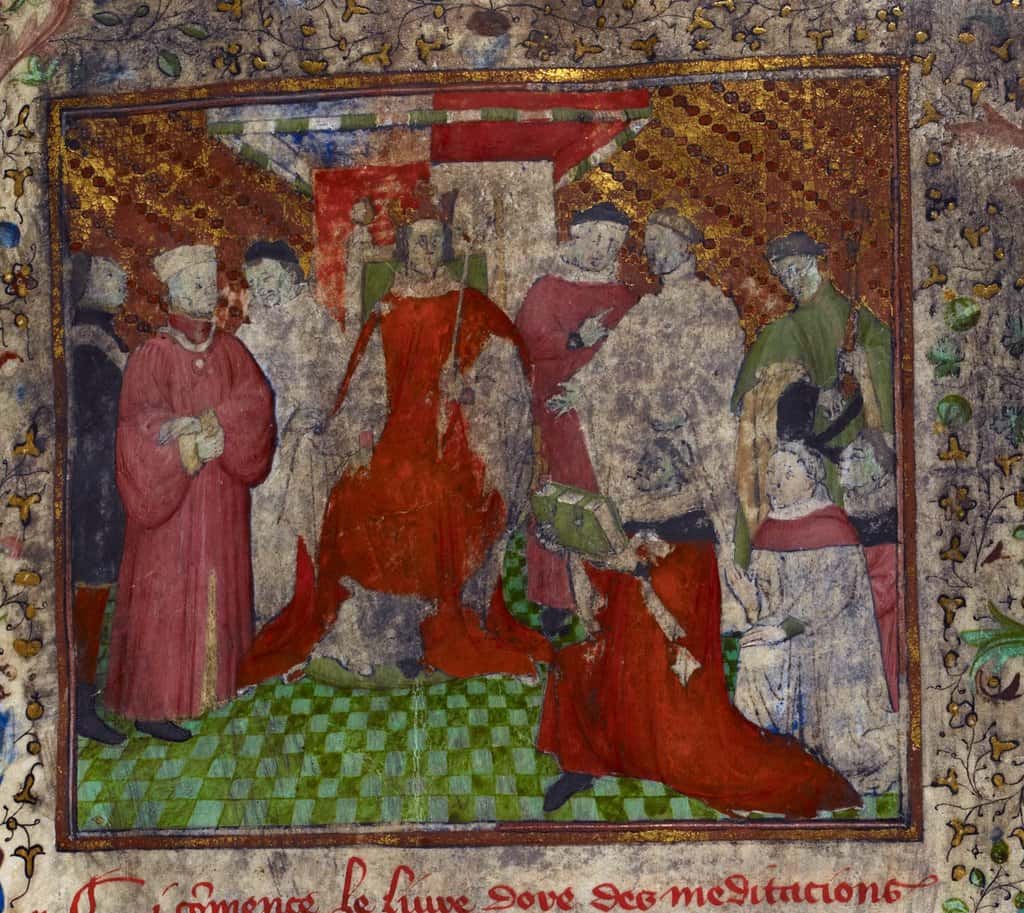 Cy cōmence le liure dore des meditacions